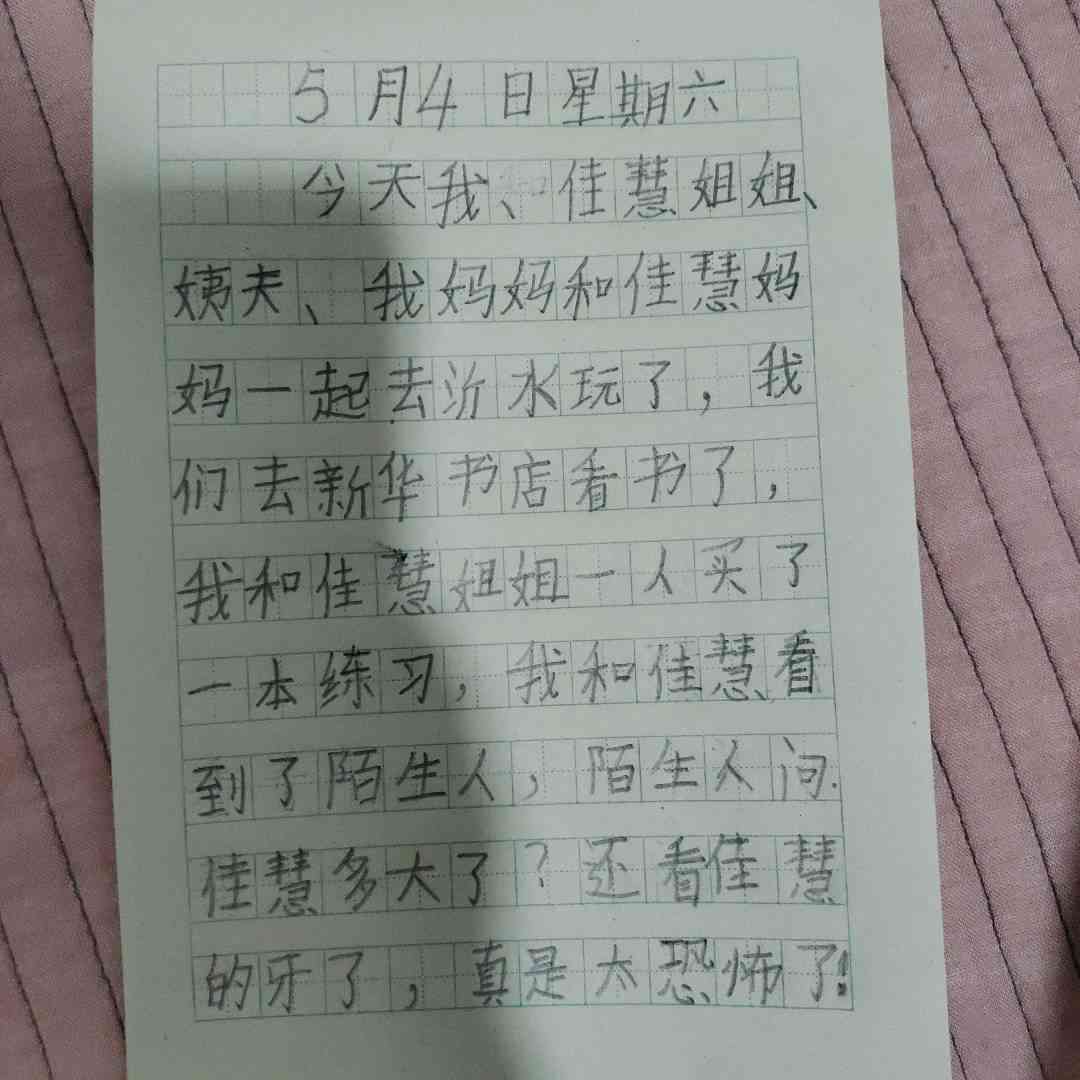 5月4日星期六
今天我、佳慧姐姐、
姨夫、我妈妈和佳慧妈
妈一起去沂水玩了，我
们去新华书店看书了，
我和佳慧姐姐一人买了
一本练习，我和佳慧看
到了陌生人，陌生人问
佳慧多大了？还看佳慧
的牙了，真是太恐怖了！